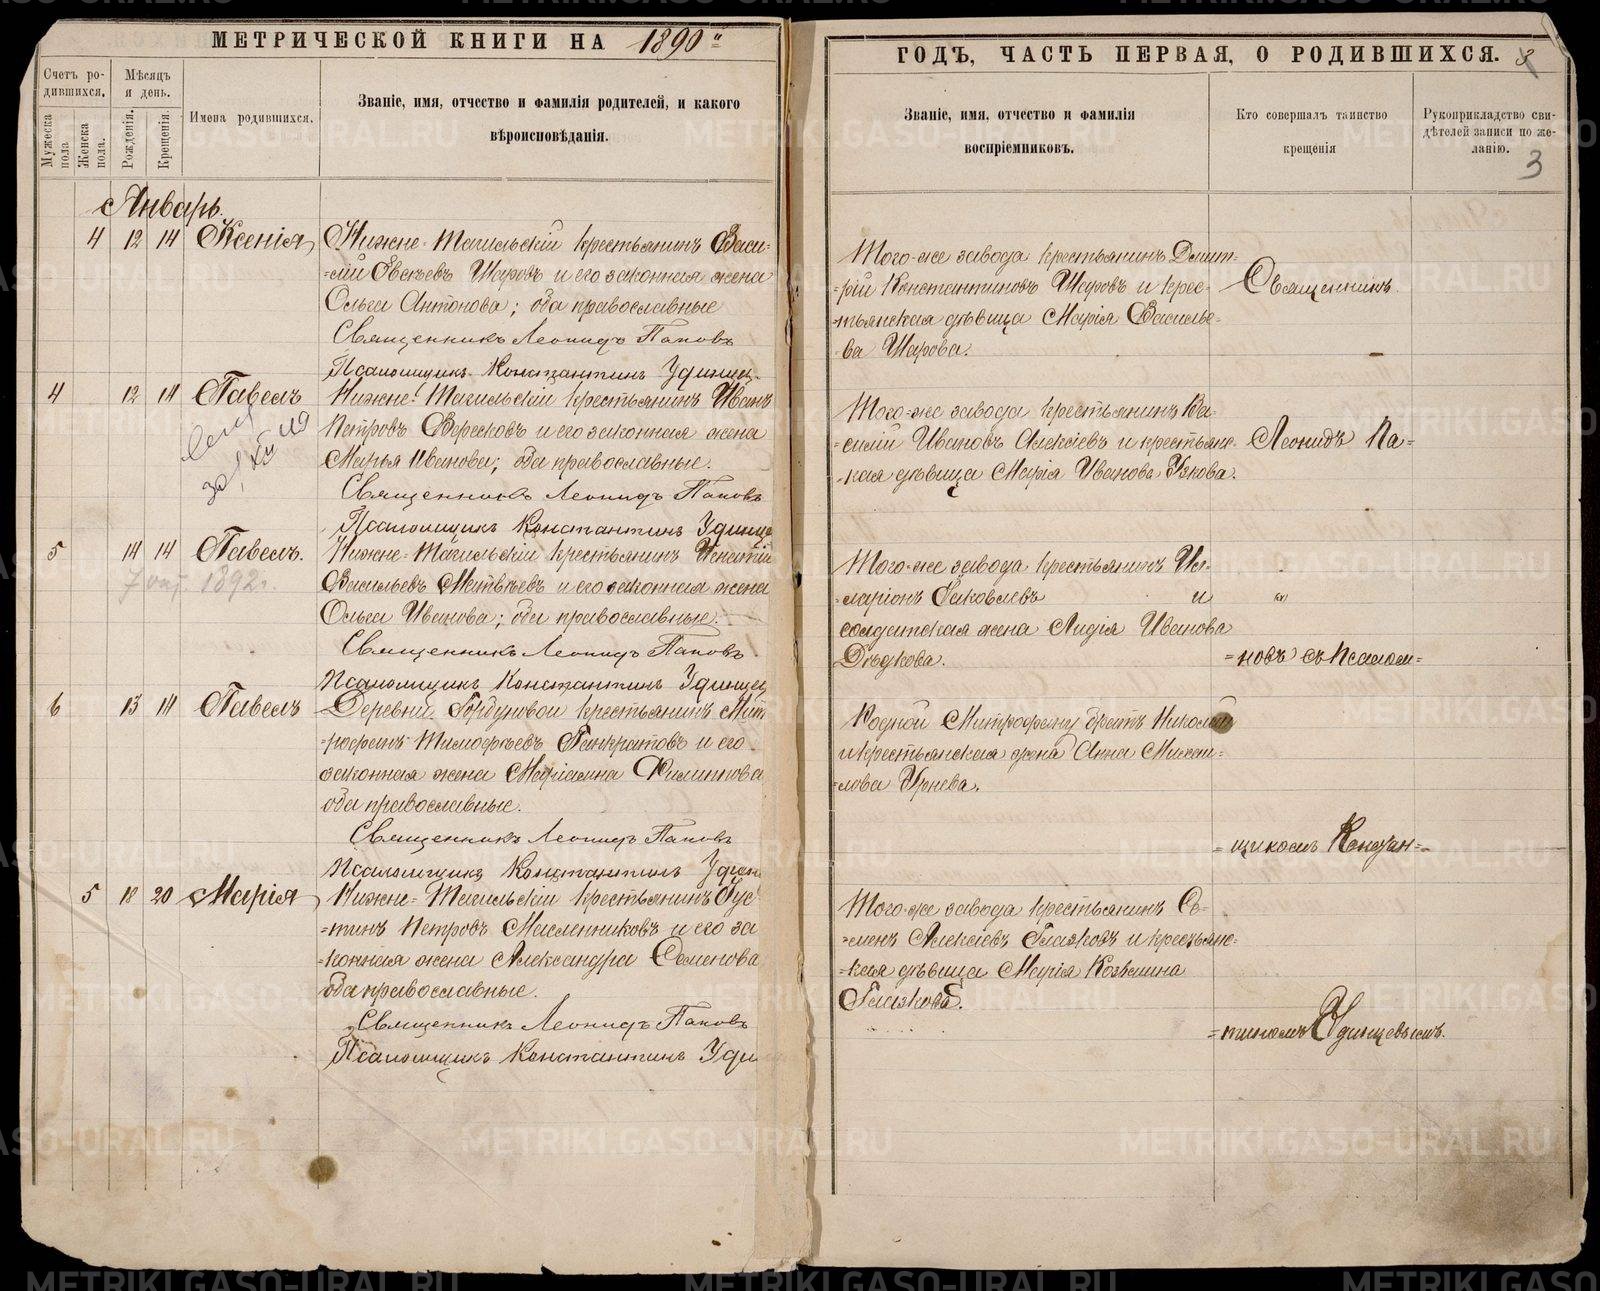 МЕТРИЧЕСКОЙ КНИГИ НА 1890
Счетъ ро-
дившихся.
Мѣсяцъ
и день.
Мужеска
пола
Женска
пола.
Рожденія.
Крещенія.
Имена родившихся.
Званіе, имя, отчество и фамилія родителей, и какого
вѣроисповѣданія.
Январь
4 12 14 Ксенія Нижне-Тагильскій крестьянинъ Васи-
=лій Евсѣевъ Шаровъ и его законная жена
Ольга Антонова; оба православные
Священникъ Леонидъ Паповъ
Псаломщикъ Константинъ Удинц
4 12 14 Павелъ Нижне-Тагильскій крестьянинъ Иванъ
Петровъ Вересковъ и его законная жена
Марья Иванова; оба православные.
Священникъ Леонидъ Паповъ
Псаломщикъ Константинъ Удинце
5 14 14 Павелъ. Нижне-Тагильскій крестьянинъ Игнатій
7 1892г. Васильевъ Матвѣевъ и его законная жена
Ольга Иванова; оба православные.
Священникъ Леонидъ Паповъ
Псаломщикъ Константинъ Удинцев
6 13 14 Павелъ Деревни Горбуновой крестьянинъ Мит
=рофанъ Тимофѣевъ Панкратовъ и его
законная жена Маріамна Филиппова
оба православные.
Священникъ Леонидъ Паповъ
Псаломщикъ Константинъ Удин
5 18 20 Марія Нижне-Тагильскій крестьянинъ Іус
=тинъ Петровъ Масленниковъ и его за
=конная жена Александра Семенова
оба православные.
Священникъ Леонидъ Паповъ
Псаломщикъ Константинъ Удин
ГОДЪ, ЧАСТЬ ПЕРВАЯ, О РОДИВШИХСЯ. 3
Званіе, имя, отчество и фамилія
воспріемниковъ.
Кто совершалъ таинство
крещенія
Рукоприкладство сви-
дѣтелей записи по же-
ланію.
3
Того-же завода крестьянинъ Дмит-
=рій Константиновъ Шаровъ и крес-
=тьянская дѣвица Марія Василье-
ва Шарова.
Священникъ
Того-же завода крестьянинъ Ва-
=силій Ивановъ Алексѣевъ и крестьянс-
=кая дѣвица Марія Иванова Узкова.
Леонидъ Па=
Того-же завода крестьянинъ Ил-
=ларіонъ Яковлевъ и
солдатская жена Лидія Иванова
Дѣдкова.
=повъ съ Псалом=
Родной Митрофану братъ Николай
и крестьянская жена Анна Михаи-
=лова
=щикомъ Констан=
Того-же завода крестьянинъ Се-
=менъ Алексѣевъ Глазковъ и крестьянс-
=кая дѣвица Марія Козьмина
Глазкова.
=тиномъ Удинцевымъ.
METRIKI.GASO-URAL.RU